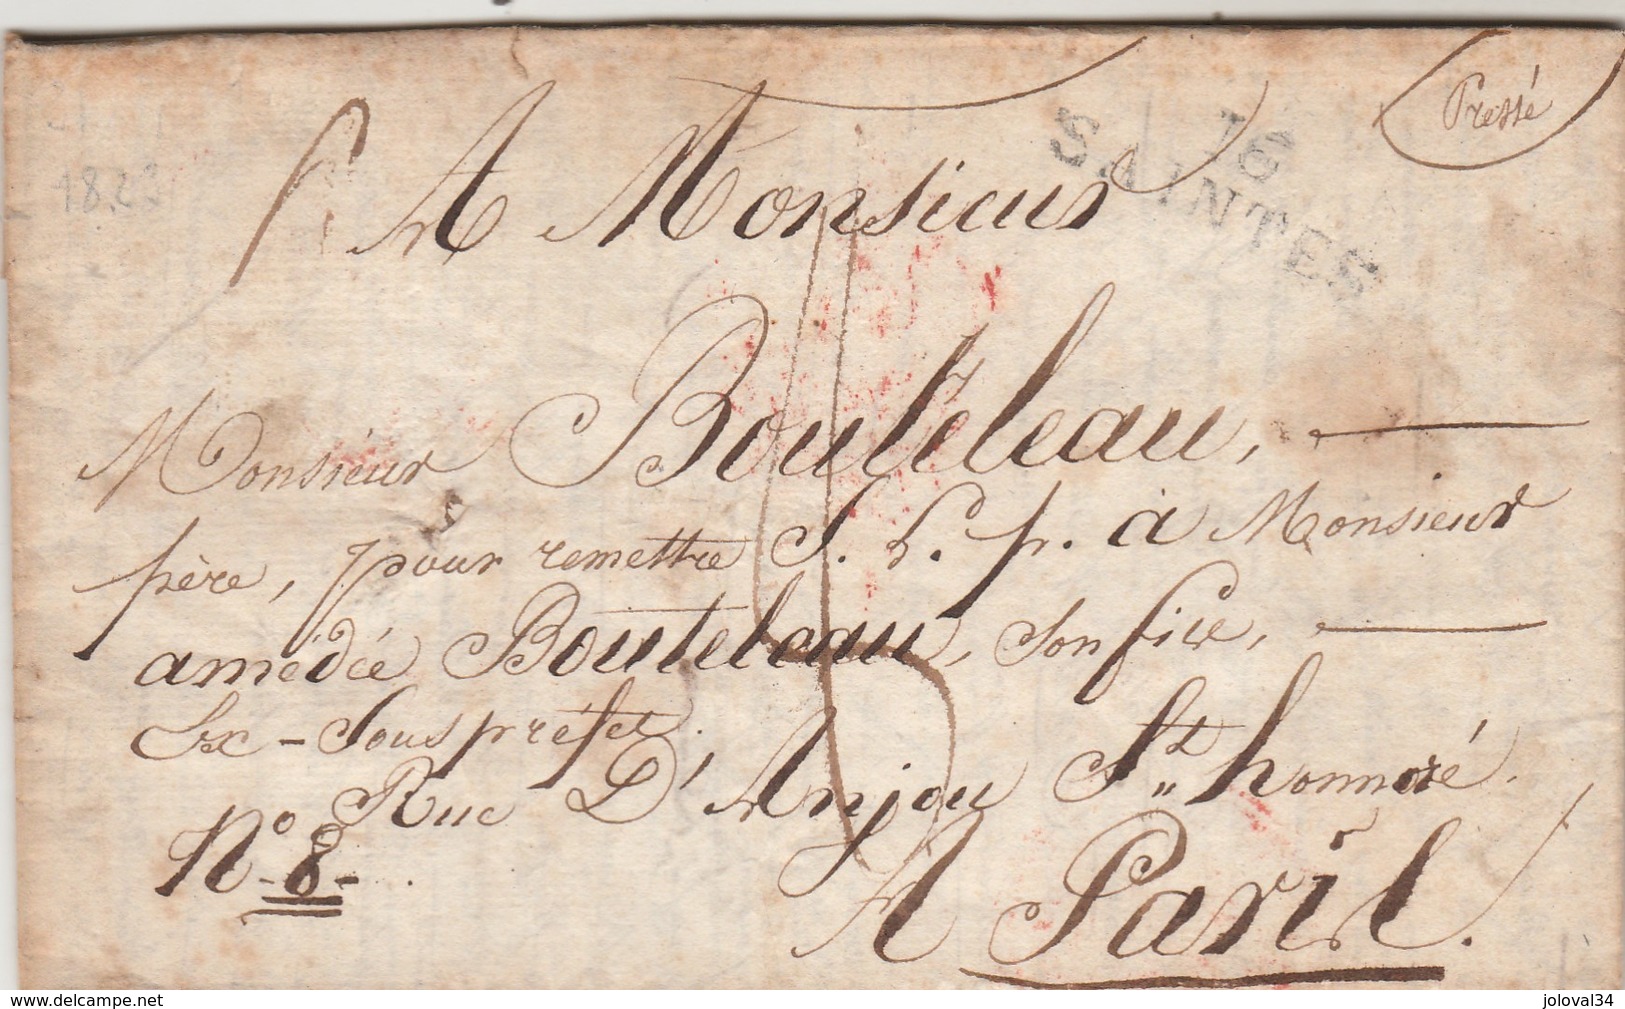 Pressé
16
SAINTES
1823
A Monsieur
Monsieur Bouteleau,
père, pour remettre S. L. p. à Monsieur
amédée Bouteleau, son fils,
Ex-Sous préfet.
Rue D'Anjou St honnoré.
N° 8
A Paris.
www.delcampe.net
joloval34